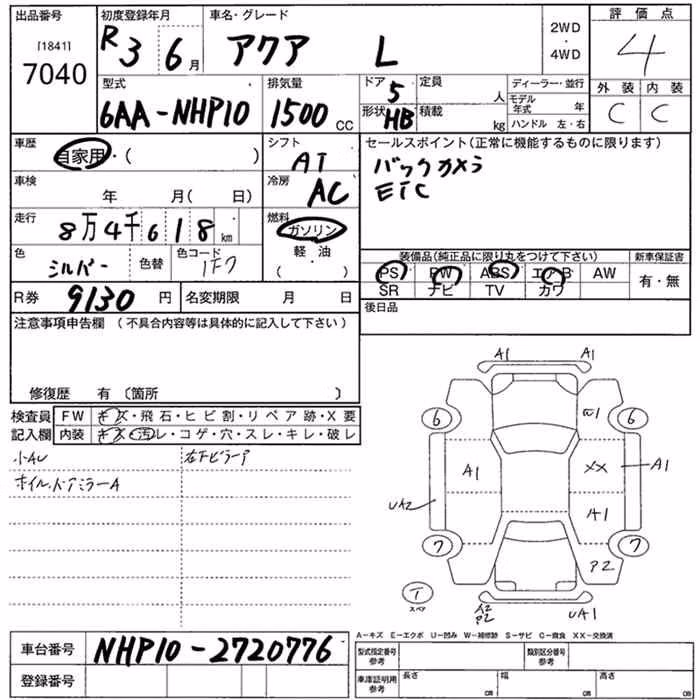 出品番号 初度登録年月 車名・グレード 評価点
[1841] R3 6月 アクア L 2WD・4WD 4
7040
型式 排気量 ドア 5 定員 人 ディーラー・並行 外装 内装
6AA-NHP10 1500 CC 形状 HB 積載 kg モデル年式 年 C C
ハンドル 左・右
車歴 シフト セールスポイント(正常に機能するものに限ります)
自家用・( ) AT バックカメラ
車検 冷房 ETC
年 月( 日) AC
走行 燃料
8万4千618km ガソリン
色 色替 色コード 軽・油 装備品(純正品に限り丸をつけて下さい) 新車保証書
シルバー 1F7 ・( ) PS PW ABS エアB AW 有・無
SR ナビ TV カワ
R券 9130円 名変期限 月 日 後日品
注意事項申告欄 (不具合内容等は具体的に記入して下さい)
修復歴 有 (箇所 )
検査員 FW キズ・飛石・ヒビ割・リペア跡・X要
記入欄 内装 キズ・汚レ・コゲ・穴・スレ・キレ・破レ
小AU 右下ピラーア
ホイル、ドアミラーA
A1 A1
6 6
A1 XX A1
UA2 A1
7 7
P2
T
スペア
A2 UA1
P2
A-キズ E-エクボ U-凹み W-補修跡 S-サビ C-腐食 XX-交換済
車台番号 NHP10-2720776 型式指定番号 参考 類別区分番号 参考
登録番号 車庫証明用 参考 長さ cm 幅 cm 高さ cm